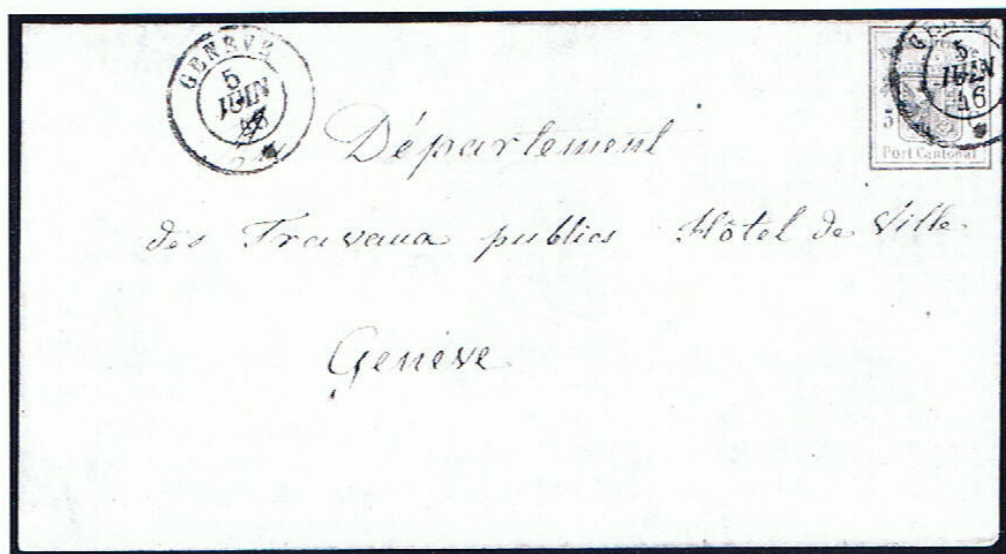 GENÈVE
5
JUIN
46
GEN
5
JUIN
46
5
Port Cantonal
Département
des Travaux publics Hôtel de Ville
Genève